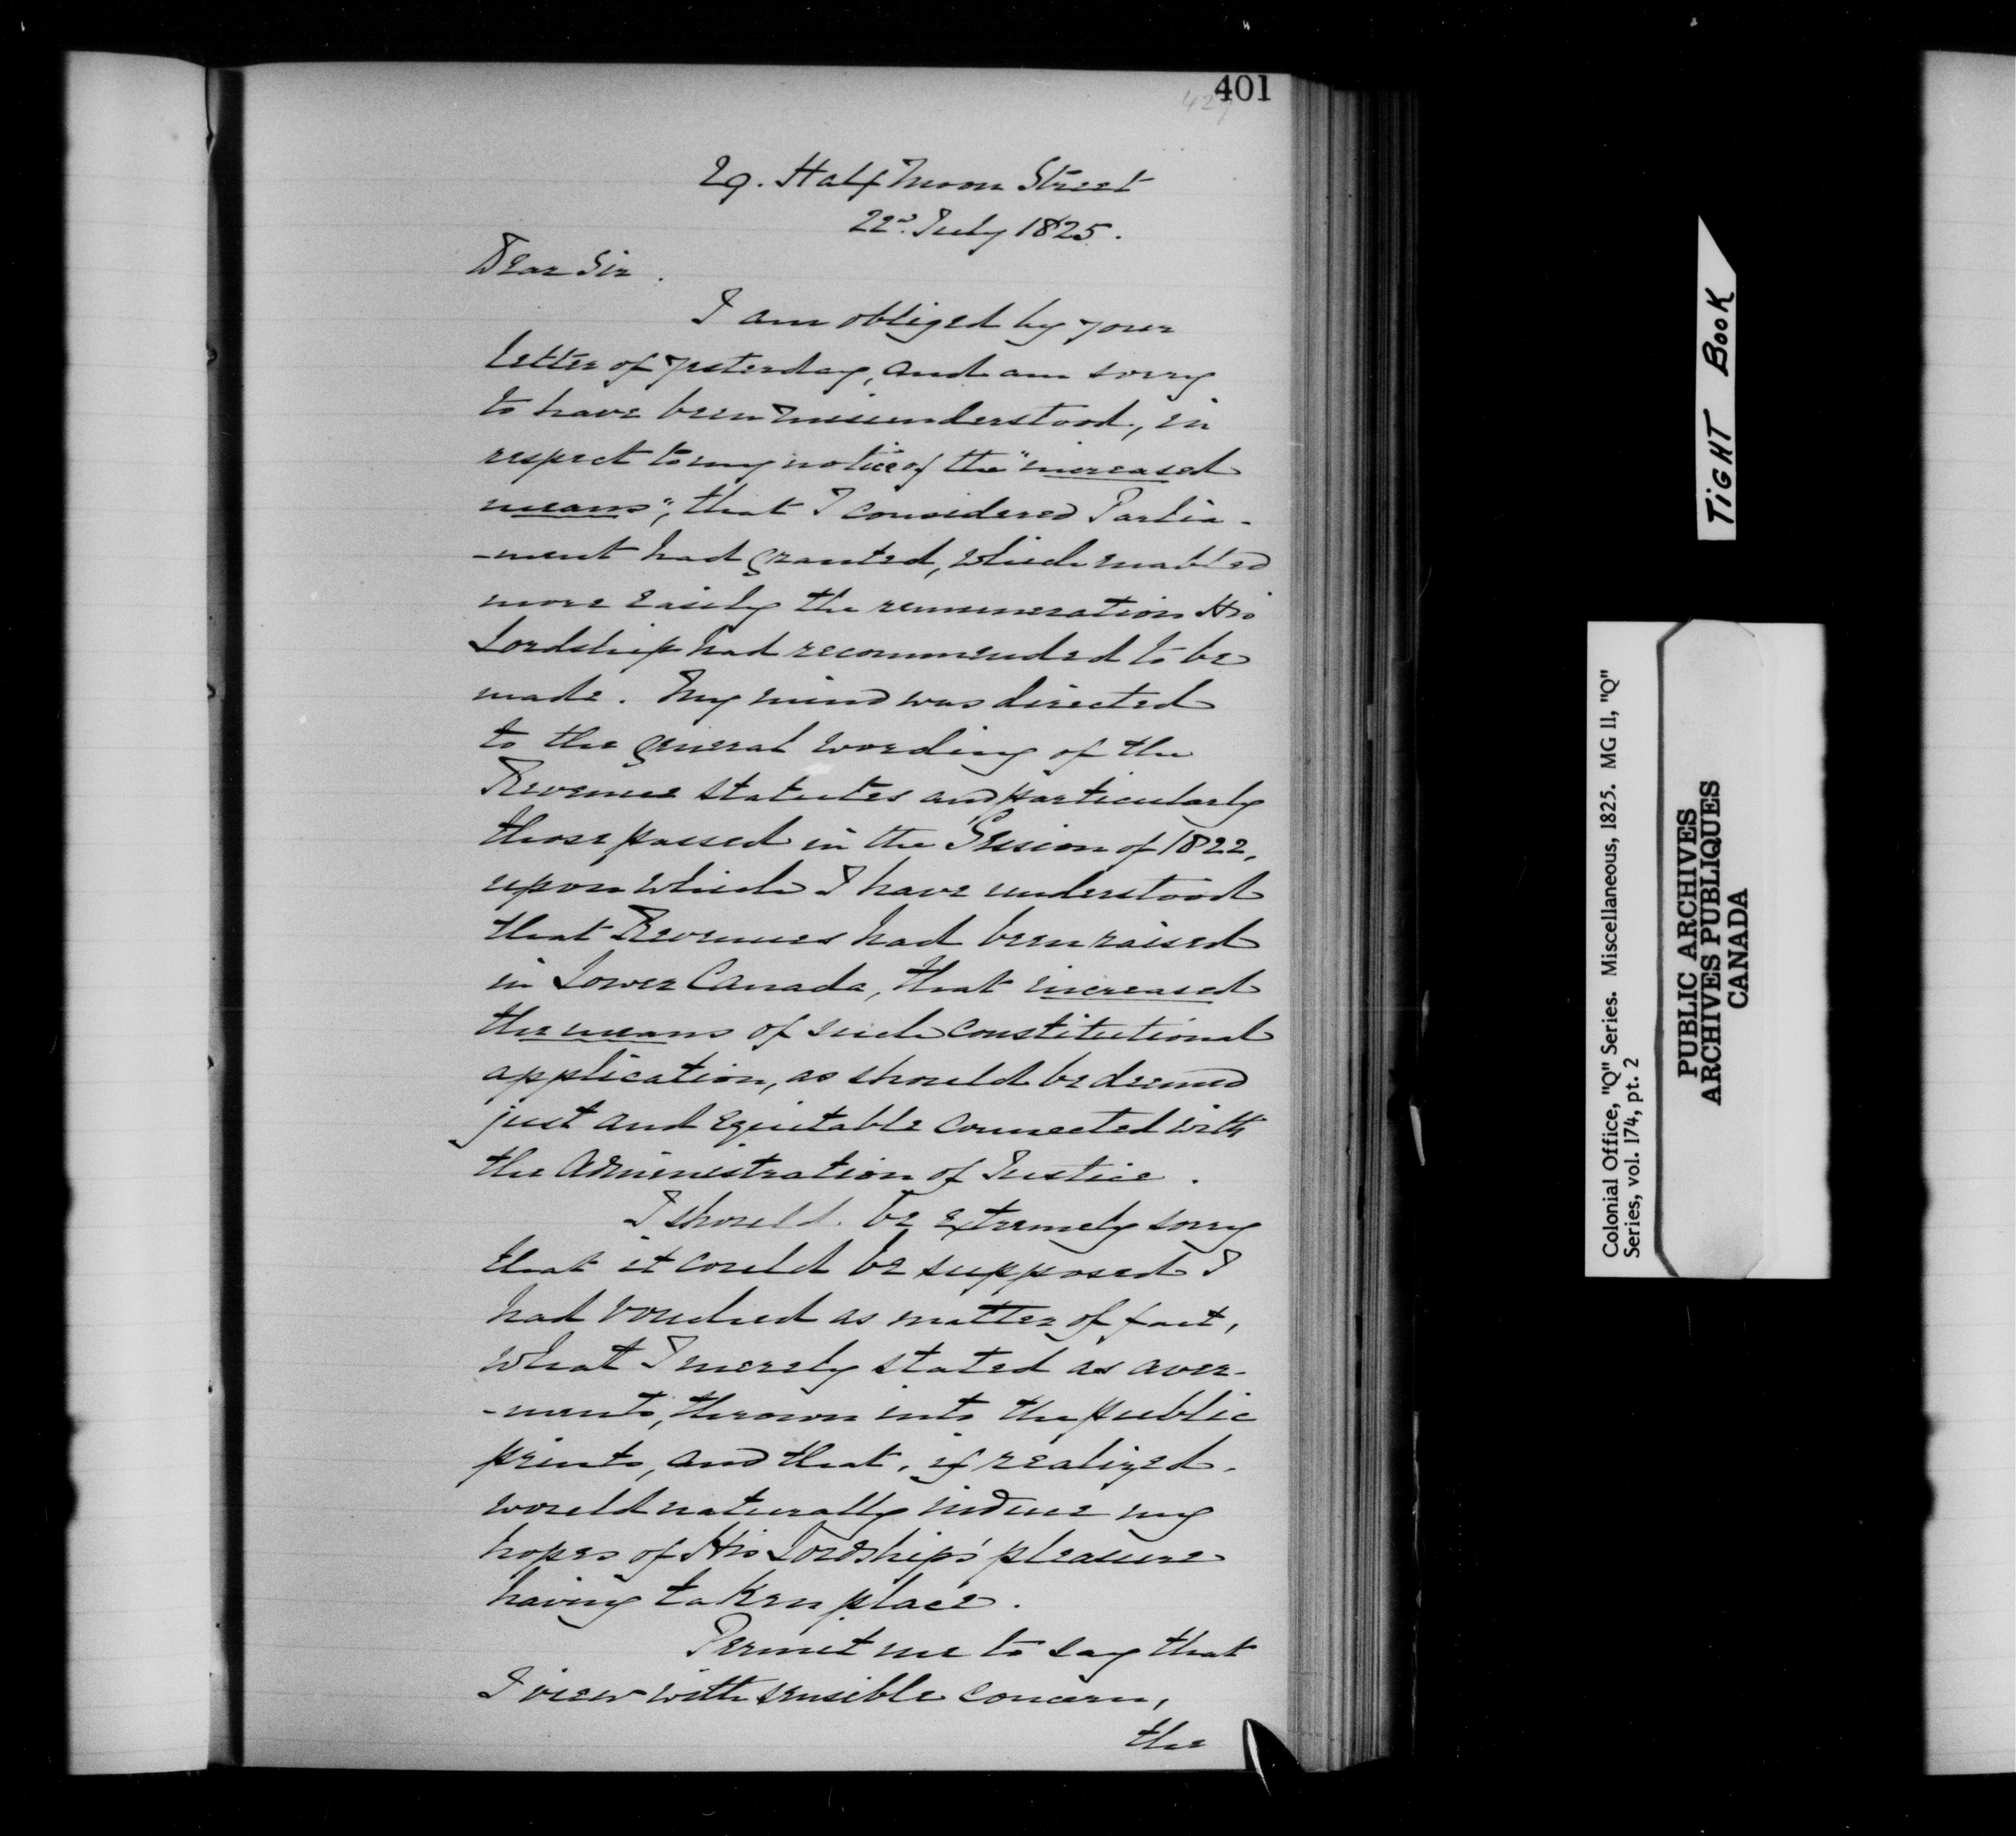 401
427
29. Half Moon Street
22d. July 1825.
Dear Sir.
I am obliged by your
letter of yesterday, and am sorry
to have been misunderstood, in
respect to my notice of the "increased
means", that I considered Parlia-
-ment had granted, which enabled
more easily the remuneration His
Lordship had recommended to be
made. My mind was directed
to the general wording of the
Revenue Statutes and particularly
those passed in the Session of 1822,
upon which I have understood
that Revenues had been raised
in Lower Canada, that increased
the means of such constitutional
application, as should be deemed
just and equitable connected with
the Administration of Justice.
I should be extremely sorry
that it could be supposed I
had vouched as matter of fact,
what I merely stated as aver-
-ments, thrown into the public
prints, and that, if realized,
would naturally induce my
hopes of His Lordship's pleasure
having taken place.
Permit me to say that
I view with sensible concern,
the
TIGHT BOOK
Colonial Office, "Q" Series. Miscellaneous, 1825. MG 11, "Q"
Series, vol. 174, pt. 2
PUBLIC ARCHIVES
ARCHIVES PUBLIQUES
CANADA